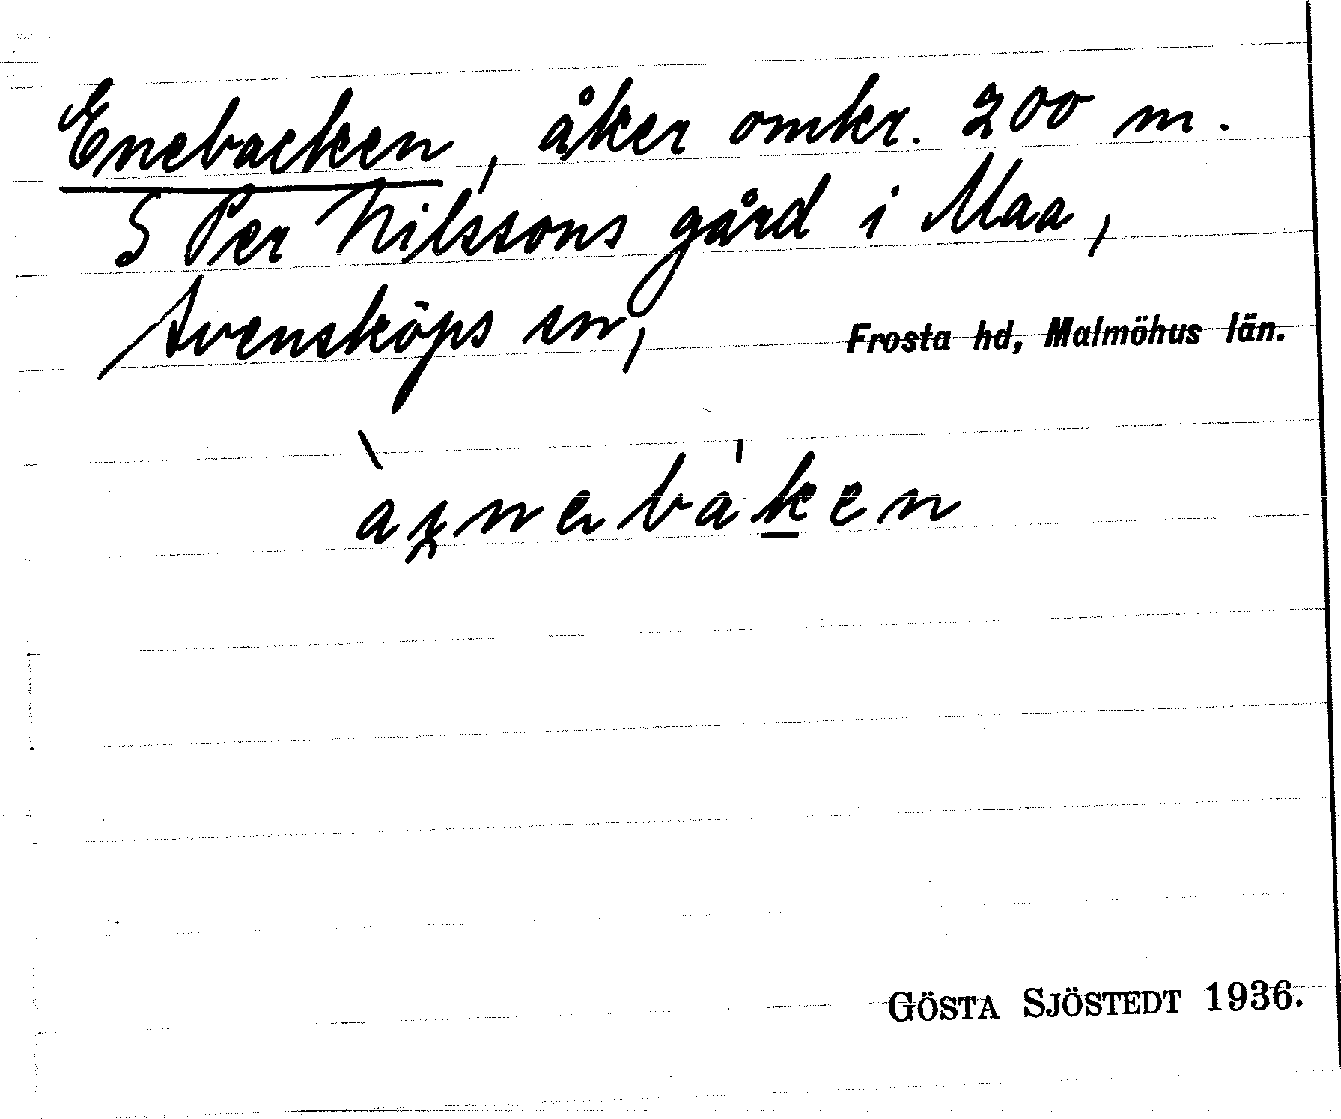 Enebacken, åker omkr. 200 m.
S Per Nilssons gård i Maa,
Svensköps sn, Frosta hd, Malmöhus län.
GÖSTA SJÖSTEDT 1936.